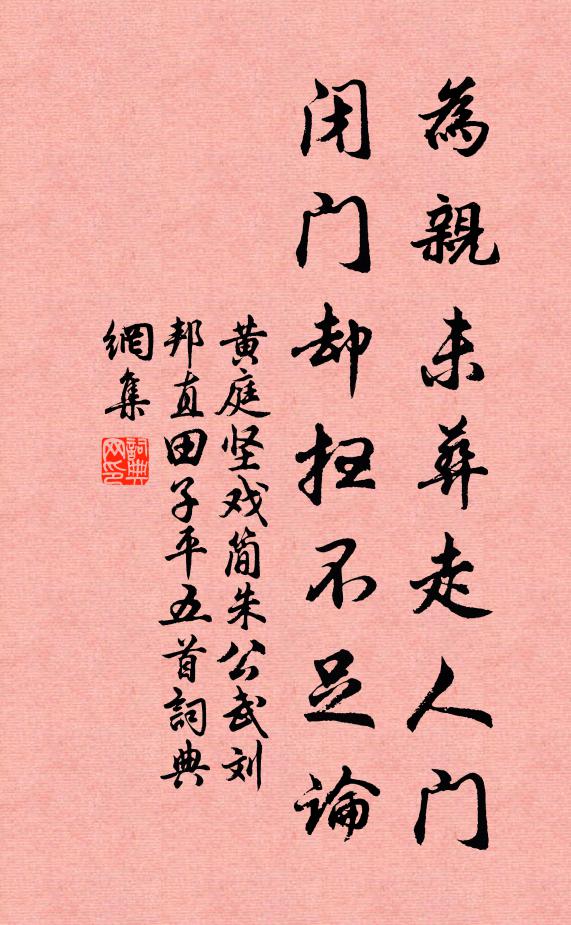 為親未葬走人门
闭门却扫不足论
黄庭坚戏简朱公武刘
邦直田子平五首詞典
網集
詞典网印